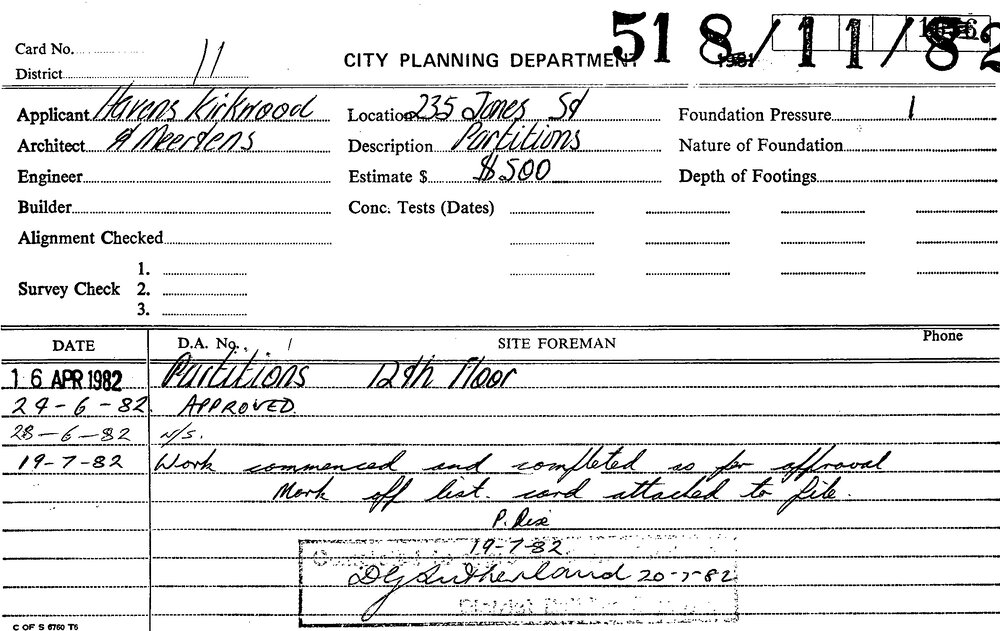 Card No.
District 11
CITY PLANNING DEPARTMENT
51 8/11/82
Applicant Havens Kirkwood Location 235 Jones St Foundation Pressure
Architect & Meertens Description Partitions Nature of Foundation
Engineer Estimate $ $500 Depth of Footings
Builder Conc. Tests (Dates)
Alignment Checked
1.
Survey Check 2.
3.
DATE D.A. No. SITE FOREMAN Phone
16 APR 1982 Partitions 12th Floor
24-6-82 APPROVED.
28-6-82 N/S.
19-7-82 Work commenced and completed as per approval
Mark off list. card attached to file.
P.
19-7-82
DG Sutherland 20-7-82
C OF S 6760 T6